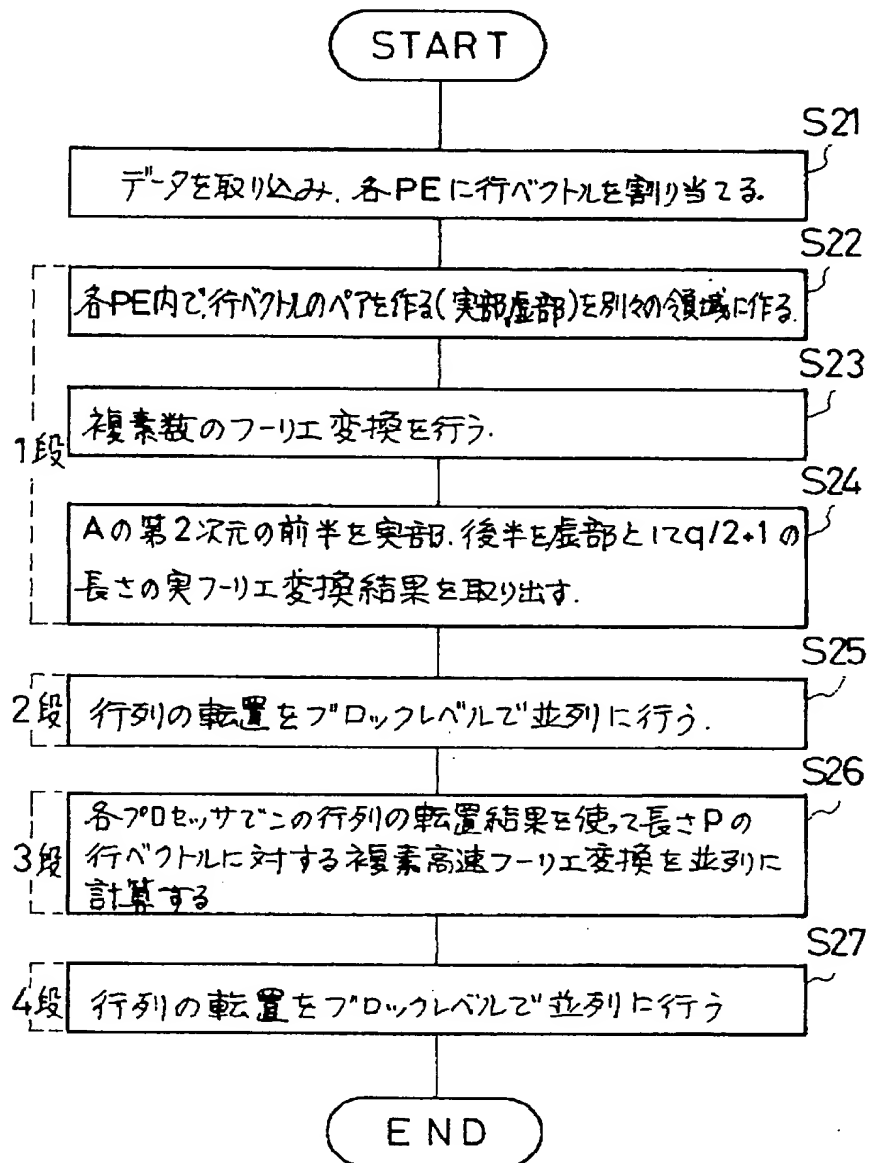 START
S21
データを取り込み、各PEに行ベクトルを割り当てる。
S22
各PE内で、行ベクトルのペアを作る(実部、虚部)を別々の領域に作る。
S23
複素数のフーリエ変換を行う。
1段
S24
Aの第2次元の前半を実部、後半を虚部としてq/2+1の
長さの実フーリエ変換結果を取り出す。
S25
2段
行列の転置をブロックレベルで並列に行う。
S26
各プロセッサでこの行列の転置結果を使って長さPの
3段
行ベクトルに対する複素高速フーリエ変換を並列に
計算する
S27
4段
行列の転置をブロックレベルで並列に行う
END